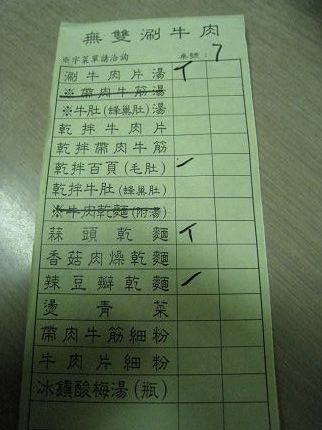 無雙涮牛肉
※字菜單請洽詢 桌號：7
涮牛肉片湯
※帶肉牛筋湯
※牛肚(蜂巢肚)湯
乾拌牛肉片
乾拌帶肉牛筋
乾拌百頁(毛肚)
乾拌牛肚(蜂巢肚)
※牛肉乾麵(附湯)
蒜頭乾麵
香菇肉燥乾麵
辣豆瓣乾麵
燙青菜
帶肉牛筋細粉
牛肉片細粉
冰鎮酸梅湯(瓶)